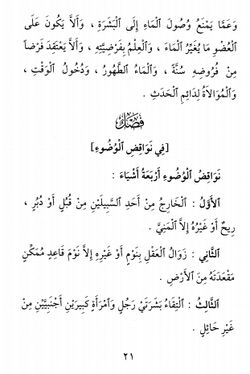 وَعَمَّا يَمْنَعُ وُصُولَ ٱلْمَاءِ إِلَى ٱلْبَشَرَةِ ، وَأَلَّا يَكُونَ عَلَى
ٱلْعُضْوِ مَا يُغَيِّرُ ٱلْمَاءَ ، وَٱلْعِلْمُ بِفَرْضِيَّتِهِ ، وَأَلَّا يَعْتَقِدَ فَرْضاً
مِنْ فُرُوضِهِ سُنَّةً ، وَٱلْمَاءُ ٱلطَّهُورُ ، وَدُخُولُ ٱلْوَقْتِ ،
وَٱلْمُوَالَاةُ لِدَائِمِ ٱلْحَدَثِ .
فَصْلٌ
[فِي نَوَاقِضِ ٱلْوُضُوءِ]
نَوَاقِضُ ٱلْوُضُوءِ أَرْبَعَةُ أَشْيَاءَ :
ٱلْأَوَّلُ : ٱلْخَارِجُ مِنْ أَحَدِ ٱلسَّبِيلَيْنِ مِنْ قُبُلٍ أَوْ دُبُرٍ ،
رِيحٌ أَوْ غَيْرُهُ إِلَّا ٱلْمَنِيَّ .
ٱلثَّانِي : زَوَالُ ٱلْعَقْلِ بِنَوْمٍ أَوْ غَيْرِهِ إِلَّا نَوْمَ قَاعِدٍ مُمَكِّنٍ
مَقْعَدَتَهُ مِنَ ٱلْأَرْضِ .
ٱلثَّالِثُ : ٱلْتِقَاءُ بَشَرَتَيْ رَجُلٍ وَٱمْرَأَةٍ كَبِيرَيْنِ أَجْنَبِيَّيْنِ مِنْ
غَيْرِ حَائِلٍ .
٢١